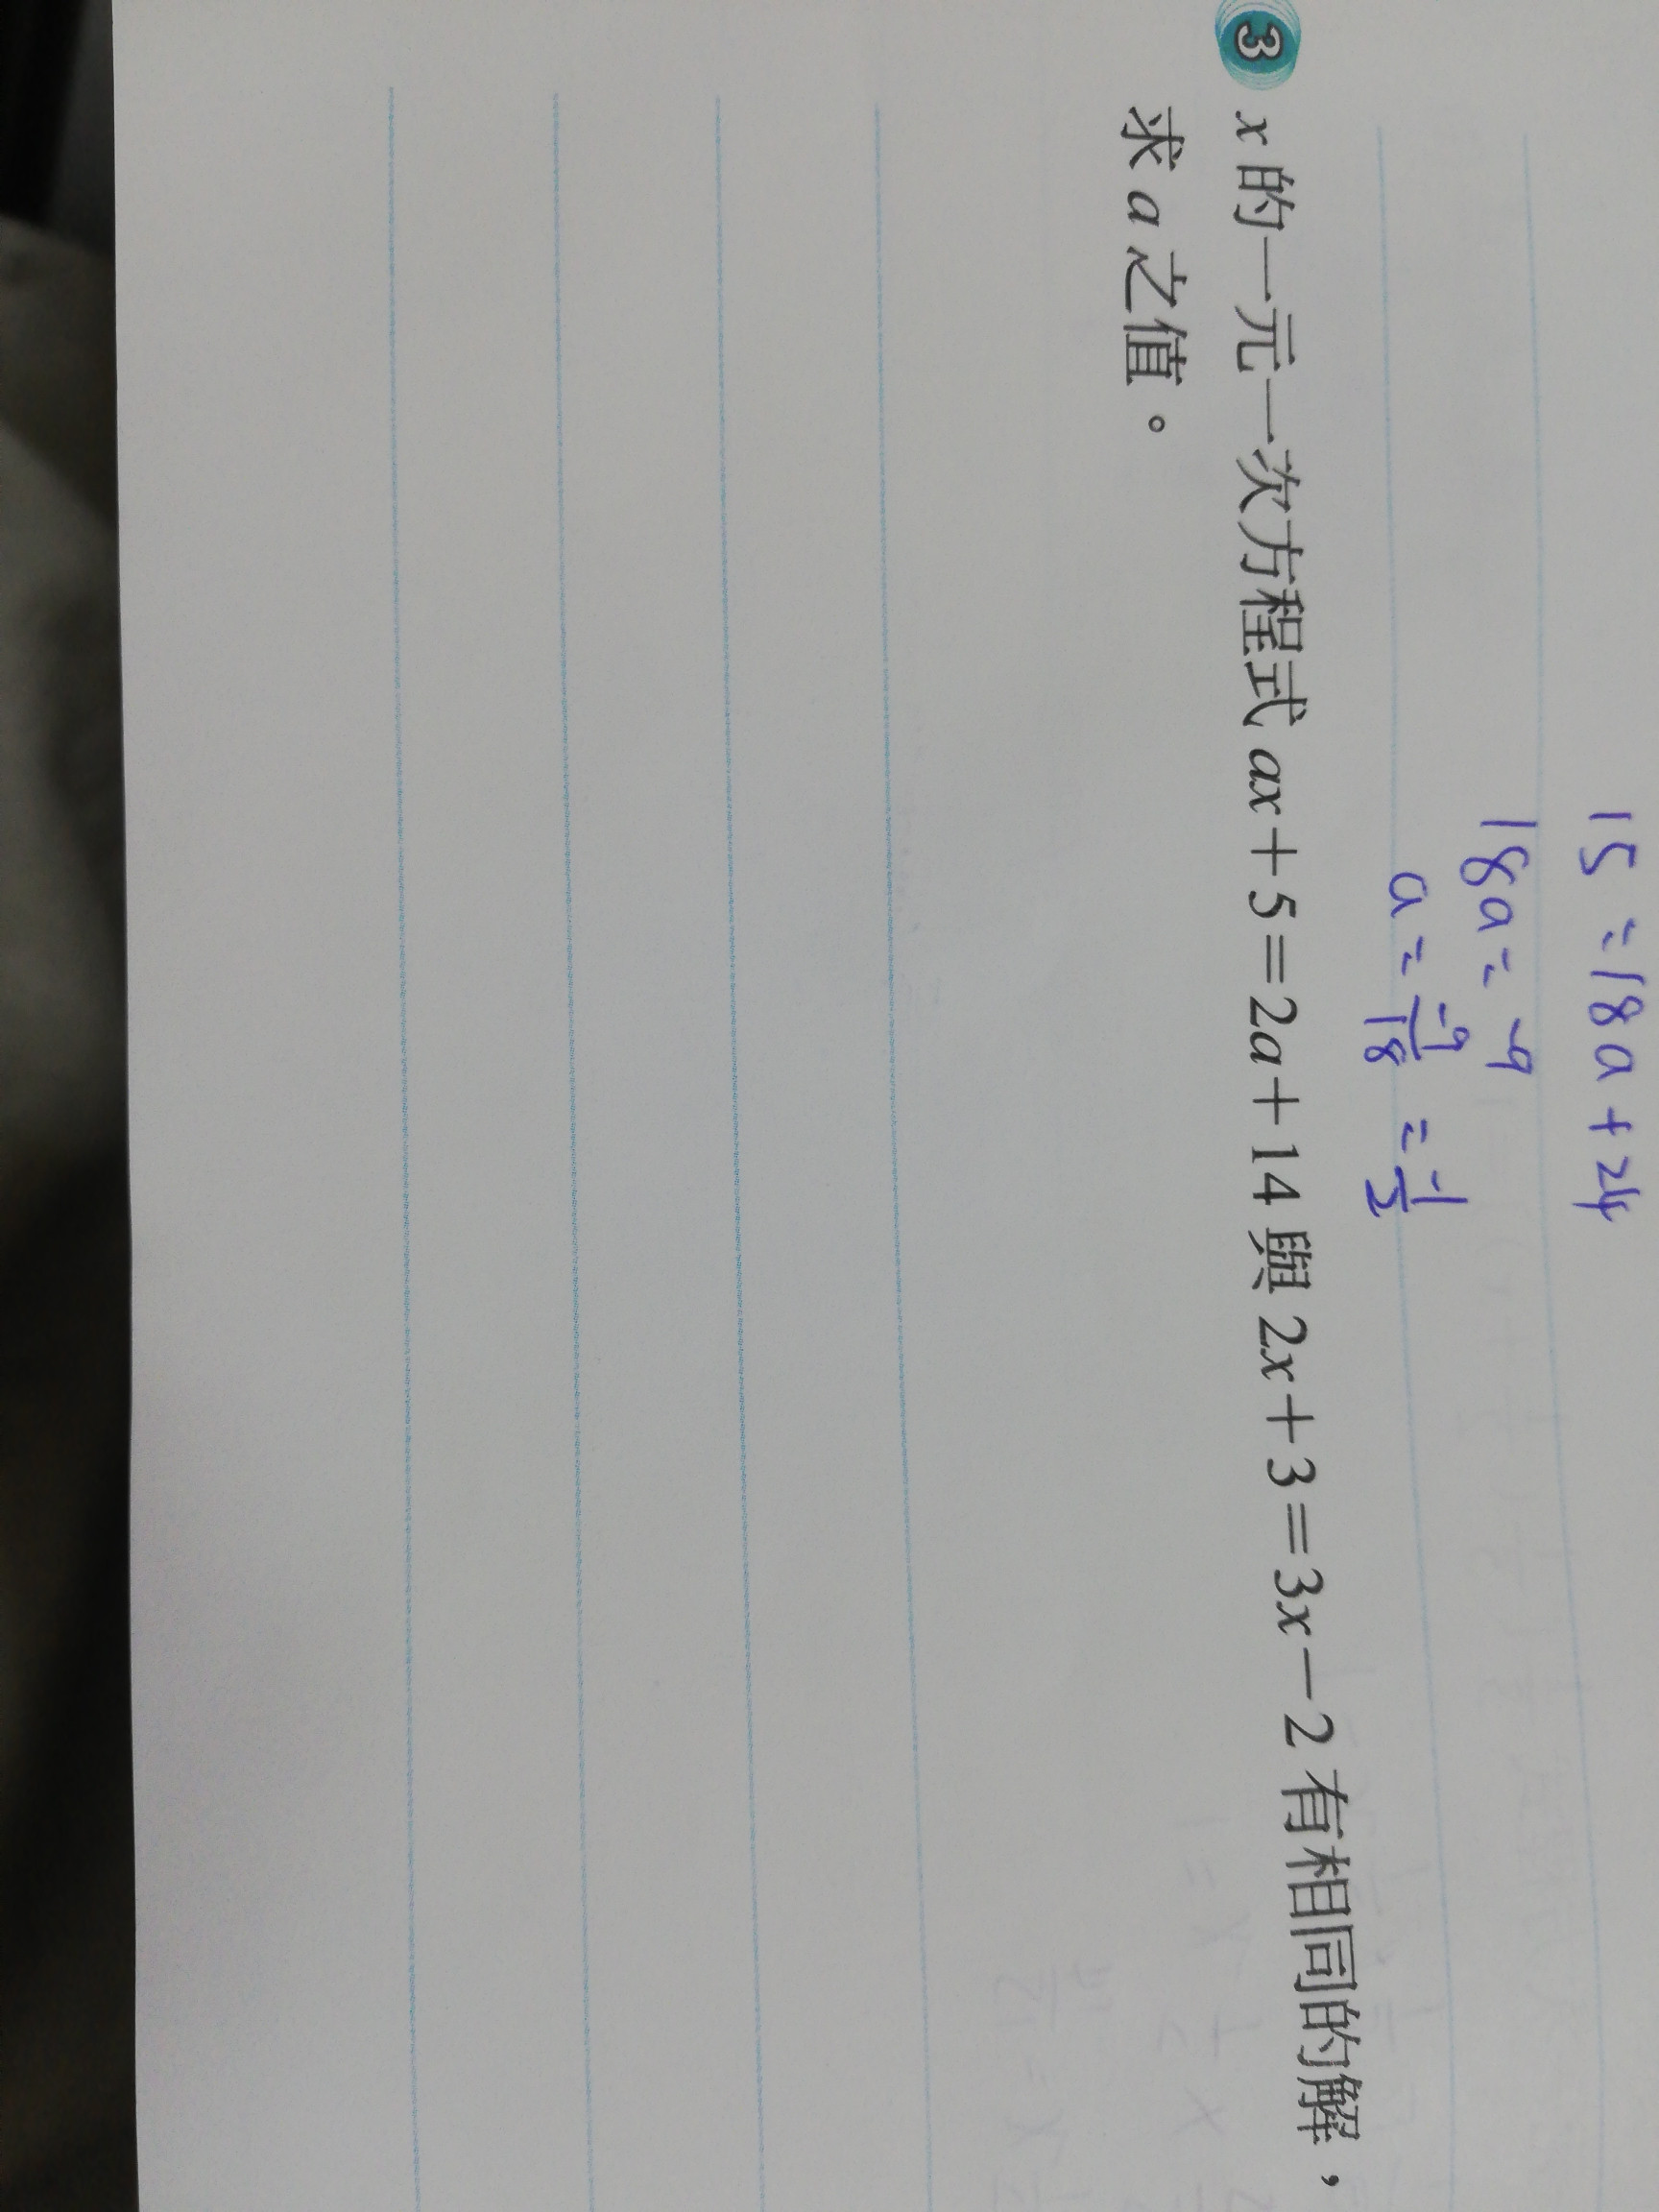 15 = 18a + 24
18a = -9
a = -9/18 = -1/2
3 x 的一元一次方程式 ax＋5＝2a＋14 與 2x＋3＝3x－2 有相同的解，
求 a 之值。